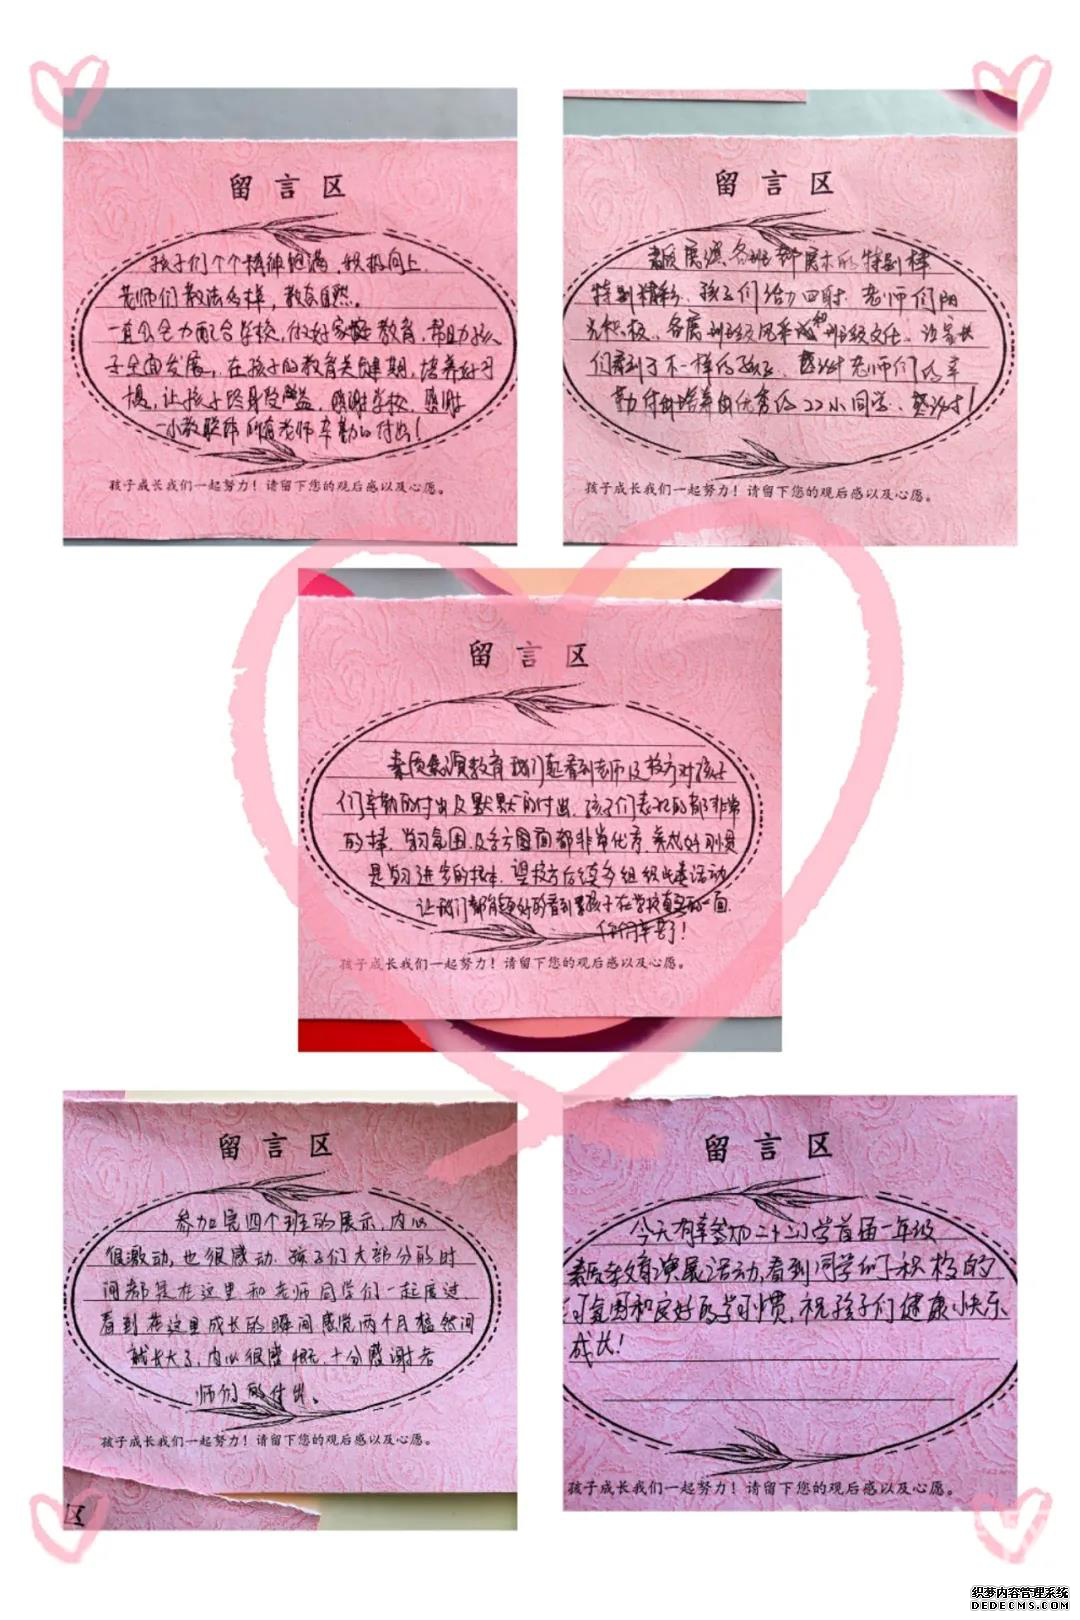 留言区
孩子们个个精神饱满，积极向上，
老师们教法多样，教态自然。
一直会全力配合学校，做好家庭教育，帮助孩
子全面发展，在孩子的教育关键期，培养好习
惯，让孩子终身受益，感谢学校，感谢
一小教联体所有老师辛勤的付出！
孩子成长我们一起努力！请留下您的观后感以及心愿。
留言区
素质展演各班都展示的特别棒
特别精彩，孩子们活力四射，老师们阳
光积极，各展班级风采和班级文化，让家长
们看到了不一样的孩子，感谢老师们的辛
勤付出培养出优秀的22小同学，感谢！
孩子成长我们一起努力！请留下您的观后感以及心愿。
留言区
素质展演教育我们看到老师及校方对孩子
们辛勤的付出及默默的付出，孩子们表现的都非常
的棒，学习氛围及各方面都非常优秀，养成好习惯
是学习进步的根本，望校方后续多组织此类活动
让我们都能更好的看到孩子在学校真实的一面，
你们辛苦了！
孩子成长我们一起努力！请留下您的观后感以及心愿。
留言区
参加完四个班的展示，内心
很激动，也很感动，孩子们大部分的时
间都是在这里和老师同学们一起度过
看到在这里成长的瞬间感觉两个月猛然间
就长大了，内心很感慨，十分感谢老
师们的付出。
孩子成长我们一起努力！请留下您的观后感以及心愿。
区
留言区
今天有幸参加二十二小学首届一年级
素质教育演展活动，看到同学们积极的
氛围和良好的学习习惯，祝孩子们健康快乐
成长！
孩子成长我们一起努力！请留下您的观后感以及心愿。
织梦内容管理系统
DEDECMS.COM